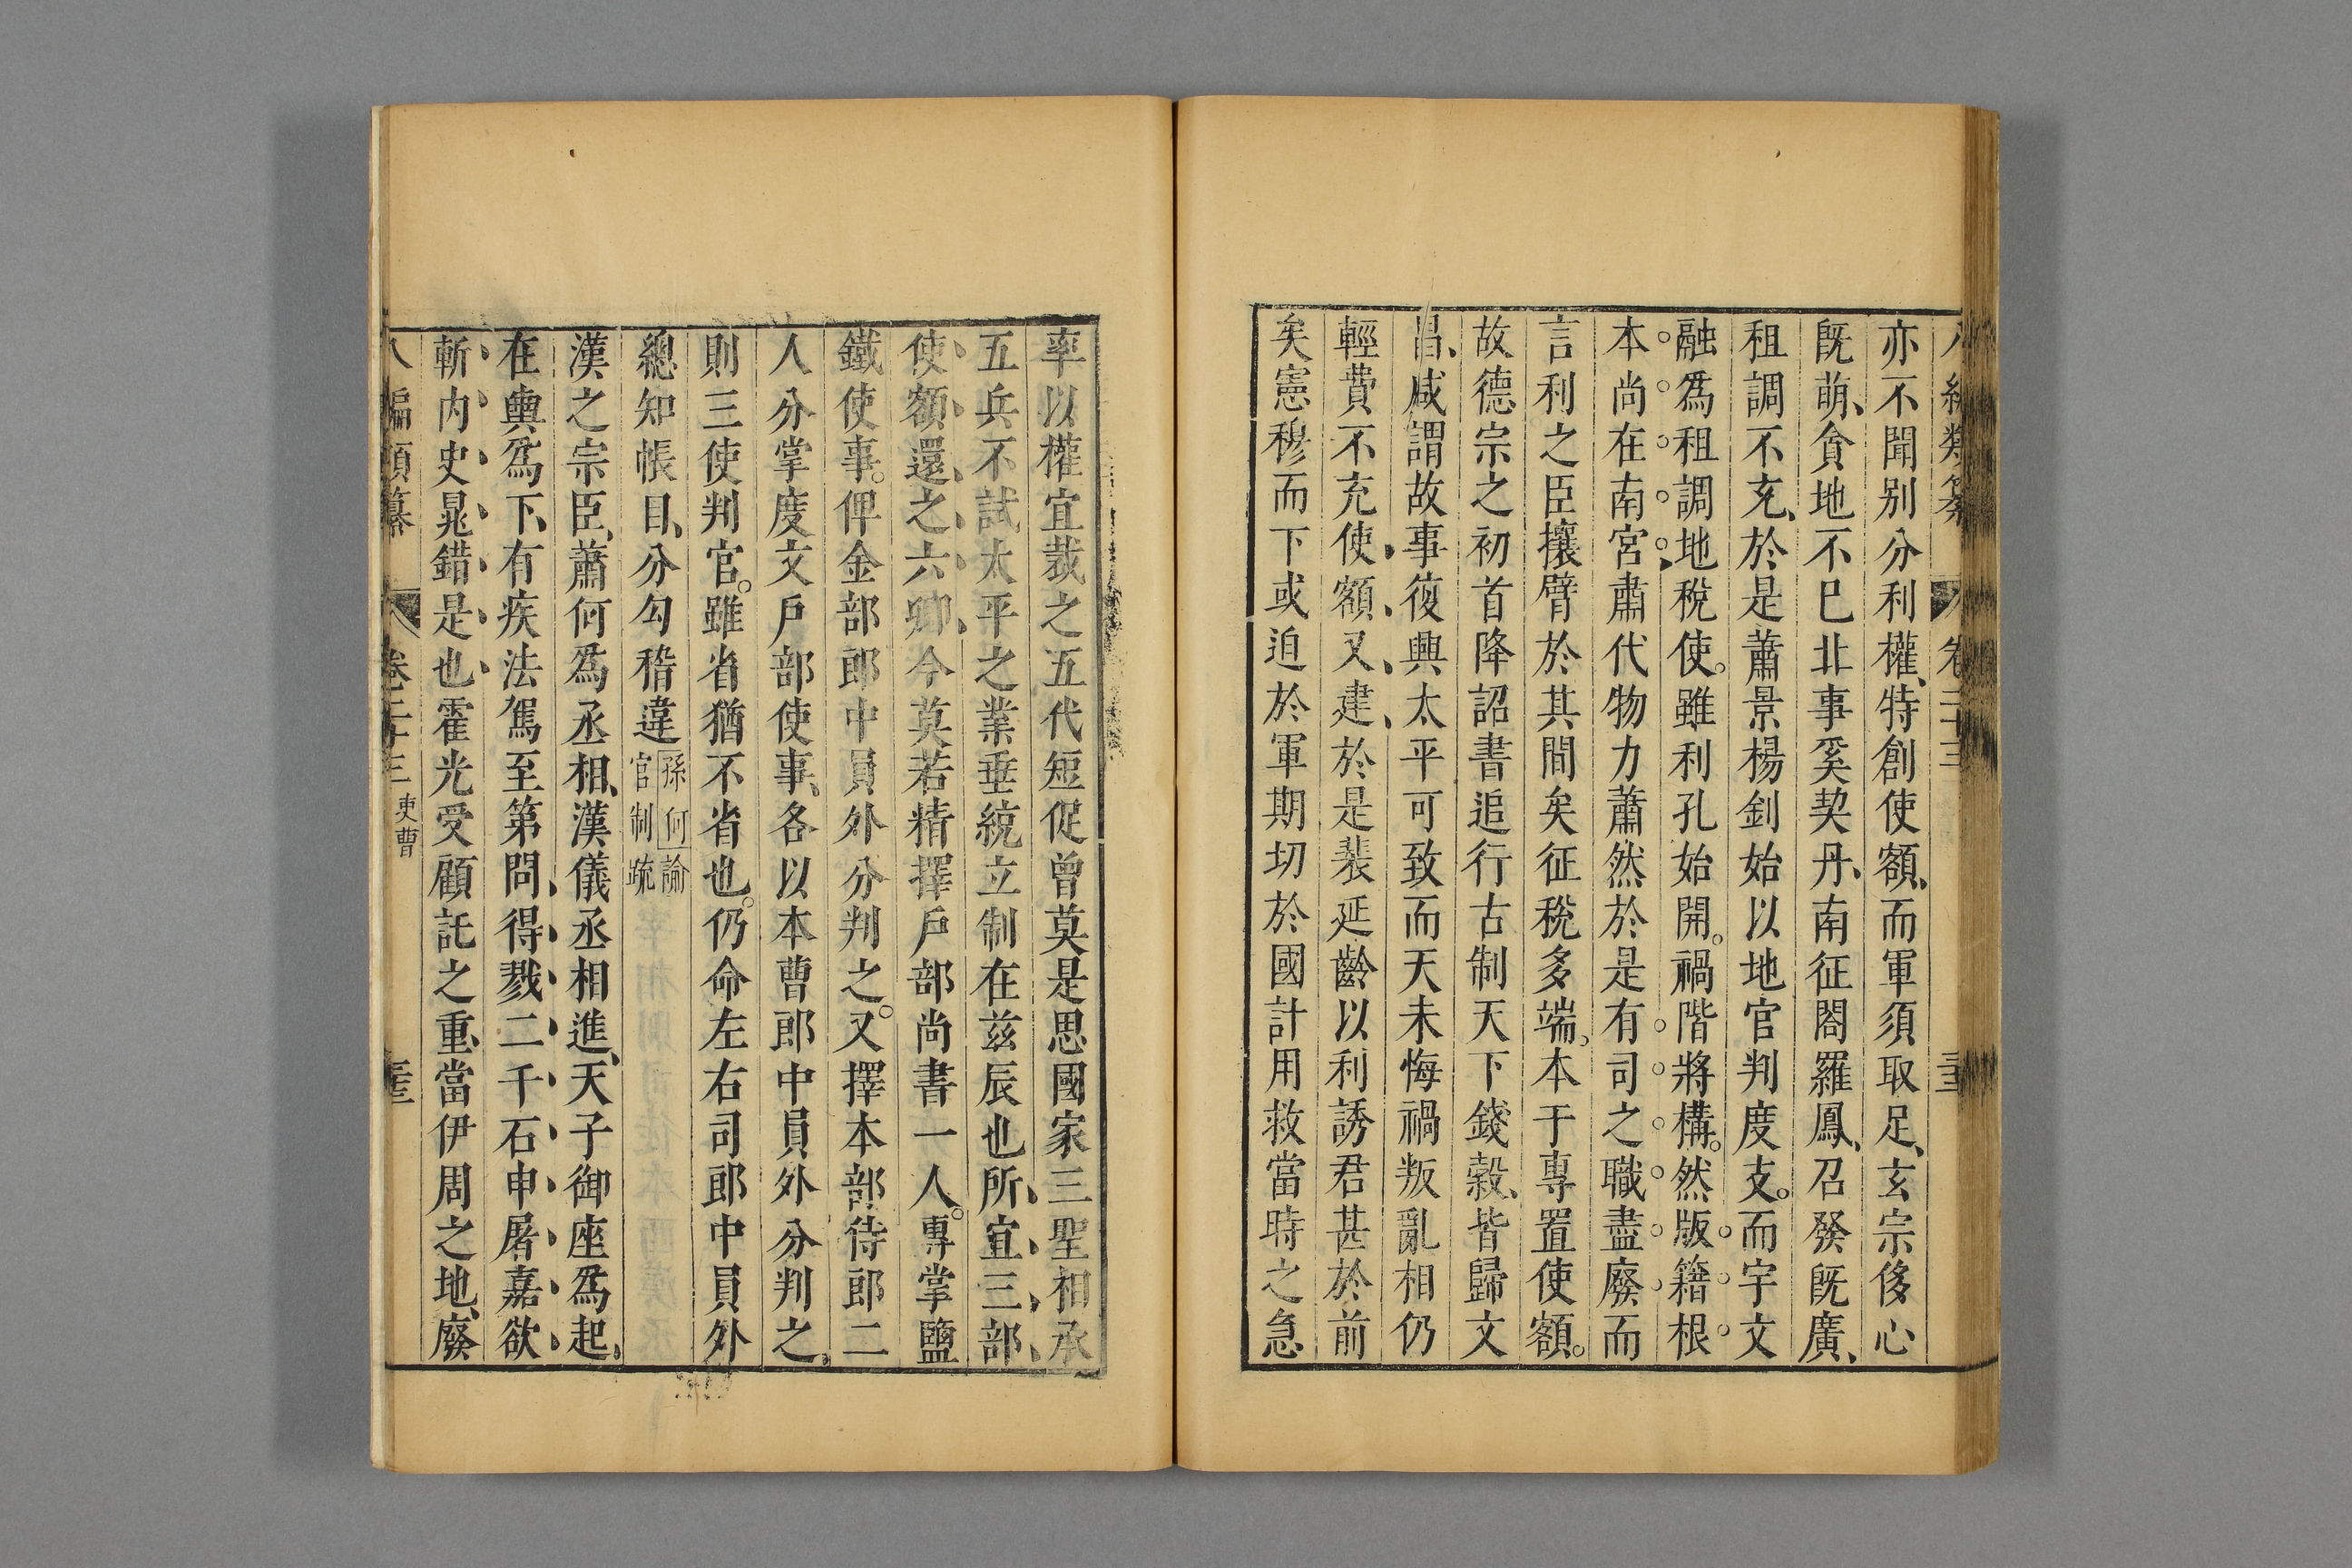 亦不聞別分利權、特創使額、而軍須取足、玄宗侈心
既萌、貪地不巳北事奚契丹、南征閤羅鳳、召發既廣、
租調不充、於是蕭景楊釗始以地官判度支。而宇文
融爲租調地稅使。雖利孔始開。禍階將構。然版籍根
本尚在南宮肅代物力蕭然於是有司之職盡廢而
言利之臣攘臂於其間矣征稅多端、本于專置使額。
故德宗之初首降詔書追行古制天下錢穀、皆歸文
昌、咸謂故事復興太平可致而天未悔禍叛亂相仍
輕費不充使額、又建、於是裴延齡以利誘君甚於前
矣憲穆而下或迫於軍期切於國計用救當時之急
率以權宜裁之五代短促曾莫是思國家三聖相承
五兵不試太平之業垂統立制在茲辰也所宜三部
使額還之六卿今莫若精擇戶部尚書一人。專掌鹽
鐵使事。俾金部郎中員外分判之。又擇本部侍郎二
人分掌度文戶部使事、各以本曹郎中員外分判之、
則三使判官。雖省猶不省也。仍命左右司郎中員外
總知帳目、分勾稽違孫何論
官制疏
漢之宗臣、蕭何爲丞相、漢儀丞相進、天子御座爲起、
在輿爲下、有疾法駕至第問、得戮二千石申屠嘉欲
斬內史晁錯是也霍光受顧託之重、當伊周之地、廢
八編類纂 卷二十三 吏曹